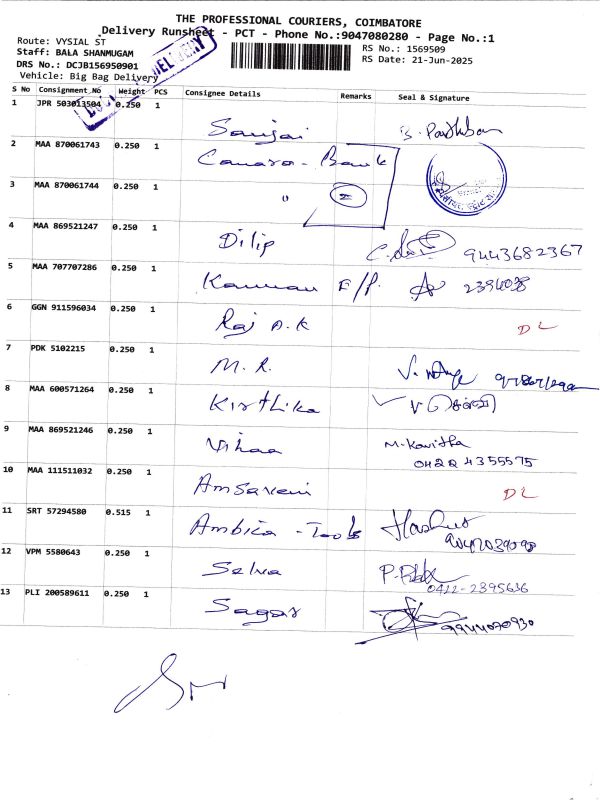 THE PROFESSIONAL COURIERS, COIMBATORE
Delivery Runsheet - PCT - Phone No.:9047080280 - Page No.:1
Route: VYSIAL ST
RS No.: 1569509
Staff: BALA SHANMUGAM
RS Date: 21-Jun-2025
DRS No.: DCJB156950901
Vehicle: Big Bag Delivery
DELIVERY
S No Consignment No Weight PCS Consignee Details Remarks Seal & Signature
1 JPR 503013504 0.250 1 Sanjai
2 MAA 870061743 0.250 1 Canara - Bank
3 MAA 870061744 0.250 1 " 2
4 MAA 869521247 0.250 1 Dilip 9443682367
5 MAA 707707286 0.250 1 Kannan E/P.
6 GGN 911596034 0.250 1 Raj A.K DL
7 PDK 5102215 0.250 1 M. R.
8 MAA 600571264 0.250 1 Kirthika
9 MAA 869521246 0.250 1 M. Kavitha
0422 4355575
10 MAA 111511032 0.250 1 DL
11 SRT 57294580 0.515 1 Ambica - Tools
12 VPM 5580643 0.250 1 Selva
0422-2395636
13 PLI 200589611 0.250 1 Sagar 9944070930